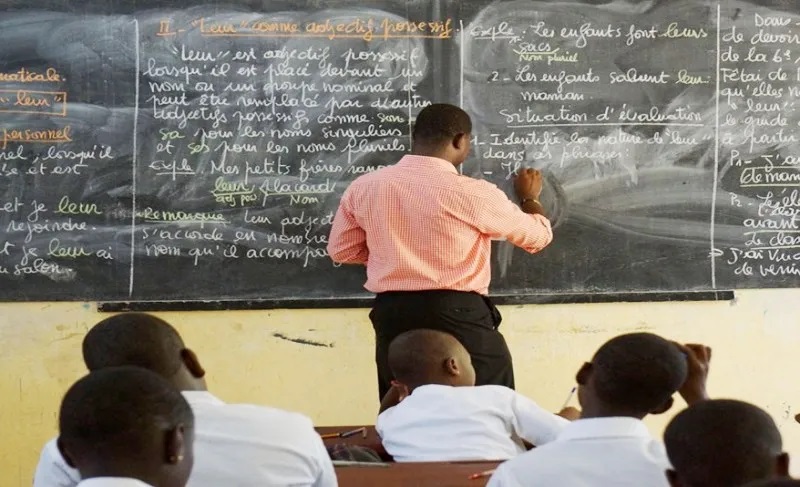 matosale.
"leur"
personnel
lorsqu'il
et est
et je leur
rejoindre.
et je leur ai
salon.
II - "Leur" comme adjectif possessif.
"Leur" est adjectif possessif
lorsqu'il est placé devant un
nom ou un groupe nominal et
peut être remplacé par d'autres
adjectifs possessifs comme: son
sa pour les noms singuliers
et ses pour les noms pluriels.
Exple: Mes petits frères
leur placard
adj pos Nom
Remarque: leur adject
s'accorde en nombre
nom qu'il accompa
Exple: Les enfants font leurs
sacs
Nom pluriel
2- Les enfants saluent leur
maman.
Situation d'évaluation
1- Identifie la nature de "leur"
dans les phrases:
Dans
de devoir
de la 6e
l'état de
qu'elles
"leur"
le guide
à partir
P1- J'au
demand
P2-
avant
le da
J'ai vu
de veni